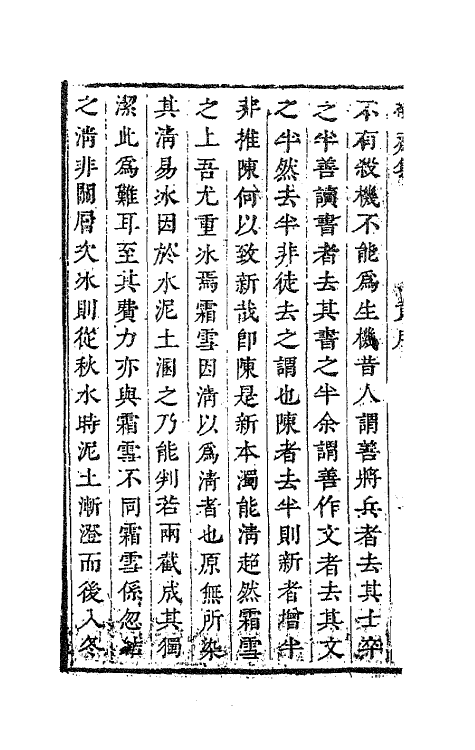 不有殺機不能為生機昔人謂善將兵者去其士卒
之半善讀書者去其書之半余謂善作文者去其文
之半然去半非徒去之謂也陳者去半則新者增半
非推陳何以致新哉卽陳是新本濁能清超然霜雪
之上吾尤重冰焉霜雪因清以為清者也原無所染
其清易冰因於水泥土溷之乃能判若兩截成其獨
潔此為難耳至其費力亦與霜雪不同霜雪係忽結
之清非關層次冰則從秋水時泥土漸澄而後入冬